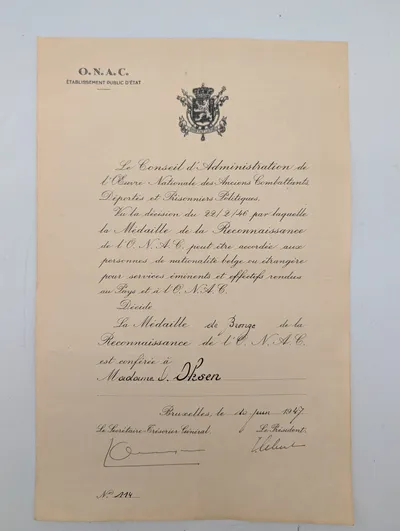 O.N.A.C.
ÉTABLISSEMENT PUBLIC D'ÉTAT
Le Conseil d'Administration de
l'Œuvre Nationale des Anciens Combattants
Déportés et Prisonniers Politiques.
Vu la décision du 22/2/46 par laquelle
la Médaille de la Reconnaissance
de l'O.N.A.C. peut être accordée aux
personnes de nationalité belge ou étrangère
pour services éminents et effectifs rendus
au Pays et à l'O.N.A.C.
Décide
La Médaille de Bronze de la
Reconnaissance de l'O.N.A.C.
est conférée à
Madame J. Oksen
Bruxelles, le juin 1947
Le Secrétaire-Trésorier Général. Le Président.
N° 114